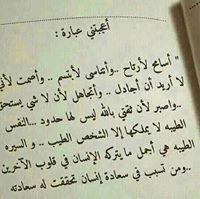 أعجبتني عبارة :
" أسامح لأرتاح .. وأتناسى لأبتسم .. وأصمت لأني
لا أريد أن أجادل .. وأتجاهل لأن لا شي يستحق
..واصبر لأن ثقتي بالله ليس لها حدود ...النفس
الطيبه لا يملكها إلا الشخص الطيب .. و السيره
الطيبه هي أجمل ما يتركه الإنسان في قلوب الآخرين
..ومن تسبب في سعادة إنسان تحققت له سعادته